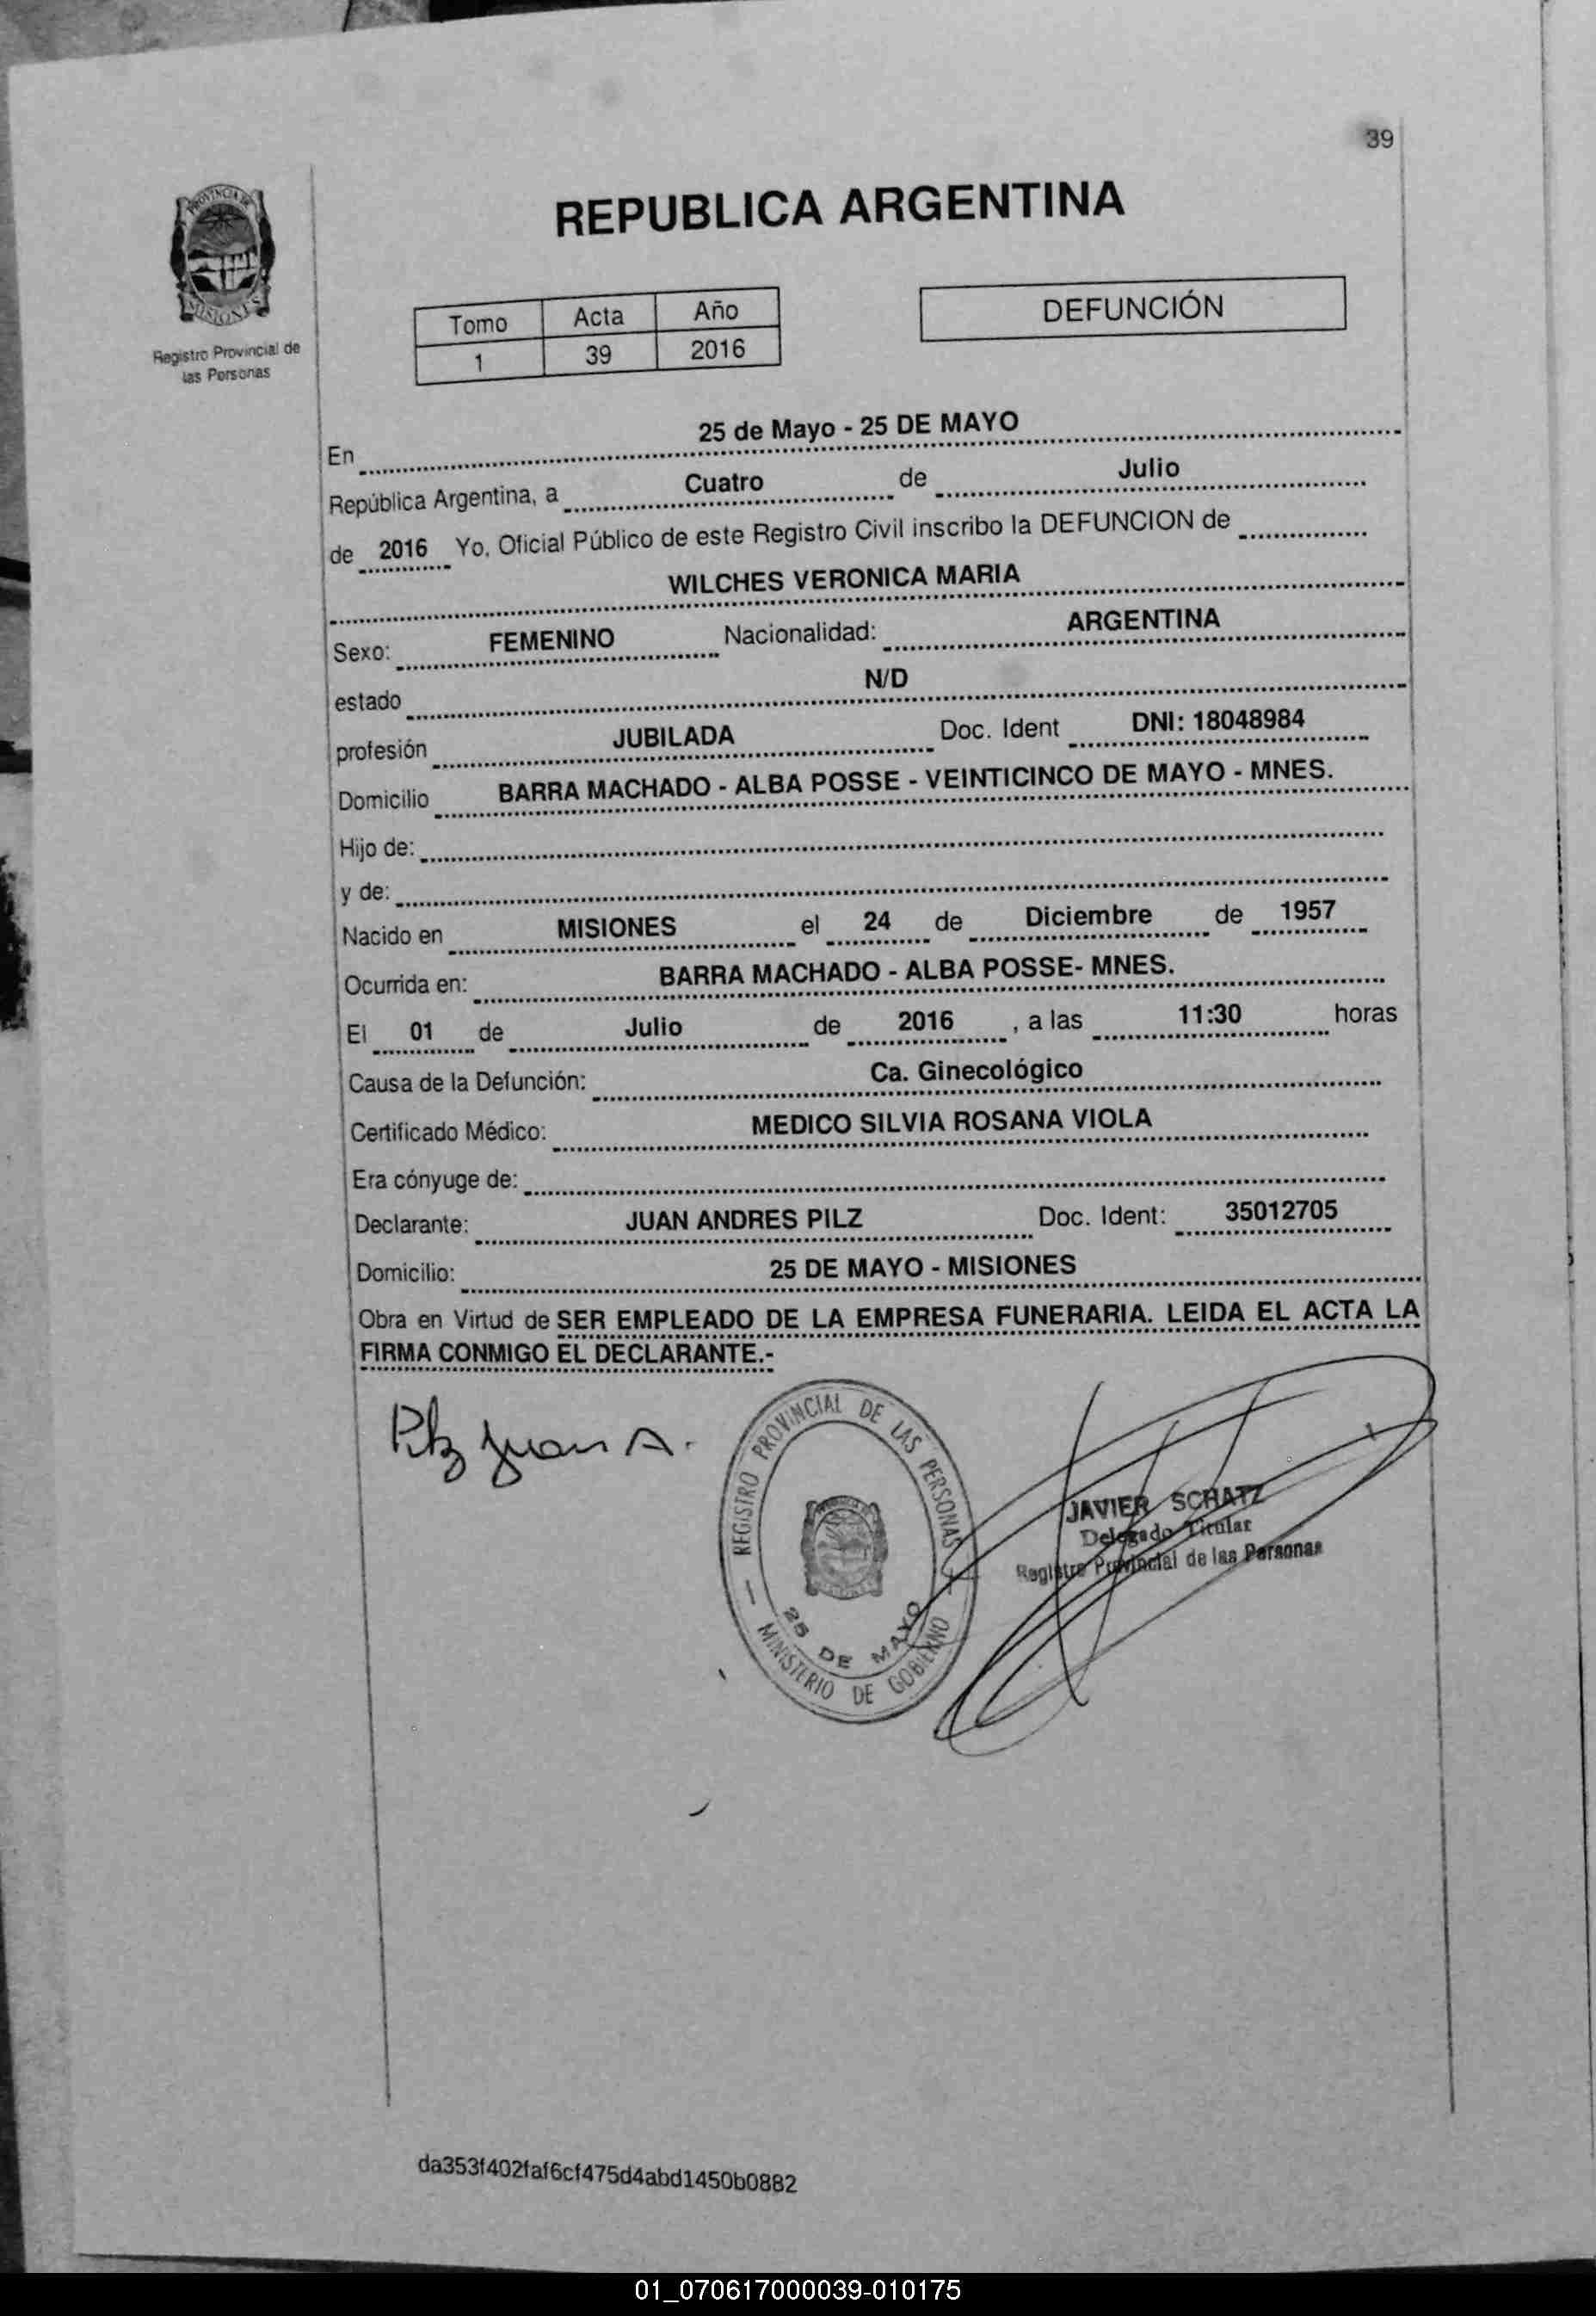 39
PROVINCIA DE
MISIONES
Registro Provincial de
las Personas
REPUBLICA ARGENTINA
Tomo Acta Año
1 39 2016
DEFUNCIÓN
En 25 de Mayo - 25 DE MAYO
República Argentina, a Cuatro de Julio
de 2016 Yo, Oficial Público de este Registro Civil inscribo la DEFUNCION de
WILCHES VERONICA MARIA
Sexo: FEMENINO Nacionalidad: ARGENTINA
estado N/D
profesión JUBILADA Doc. Ident DNI: 18048984
Domicilio BARRA MACHADO - ALBA POSSE - VEINTICINCO DE MAYO - MNES.
Hijo de:
y de:
Nacido en MISIONES el 24 de Diciembre de 1957
Ocurrida en: BARRA MACHADO - ALBA POSSE- MNES.
El 01 de Julio de 2016 , a las 11:30 horas
Causa de la Defunción: Ca. Ginecológico
Certificado Médico: MEDICO SILVIA ROSANA VIOLA
Era cónyuge de:
Declarante: JUAN ANDRES PILZ Doc. Ident: 35012705
Domicilio: 25 DE MAYO - MISIONES
Obra en Virtud de SER EMPLEADO DE LA EMPRESA FUNERARIA. LEIDA EL ACTA LA
FIRMA CONMIGO EL DECLARANTE.-
Pilz Juan A.
REGISTRO PROVINCIAL DE LAS PERSONAS
25 DE MAYO
MINISTERIO DE GOBIERNO
JAVIER SCHATZ
Delegado Titular
Registro Provincial de las Personas
da353f402faf6cf475d4abd1450b0882
01_070617000039-010175